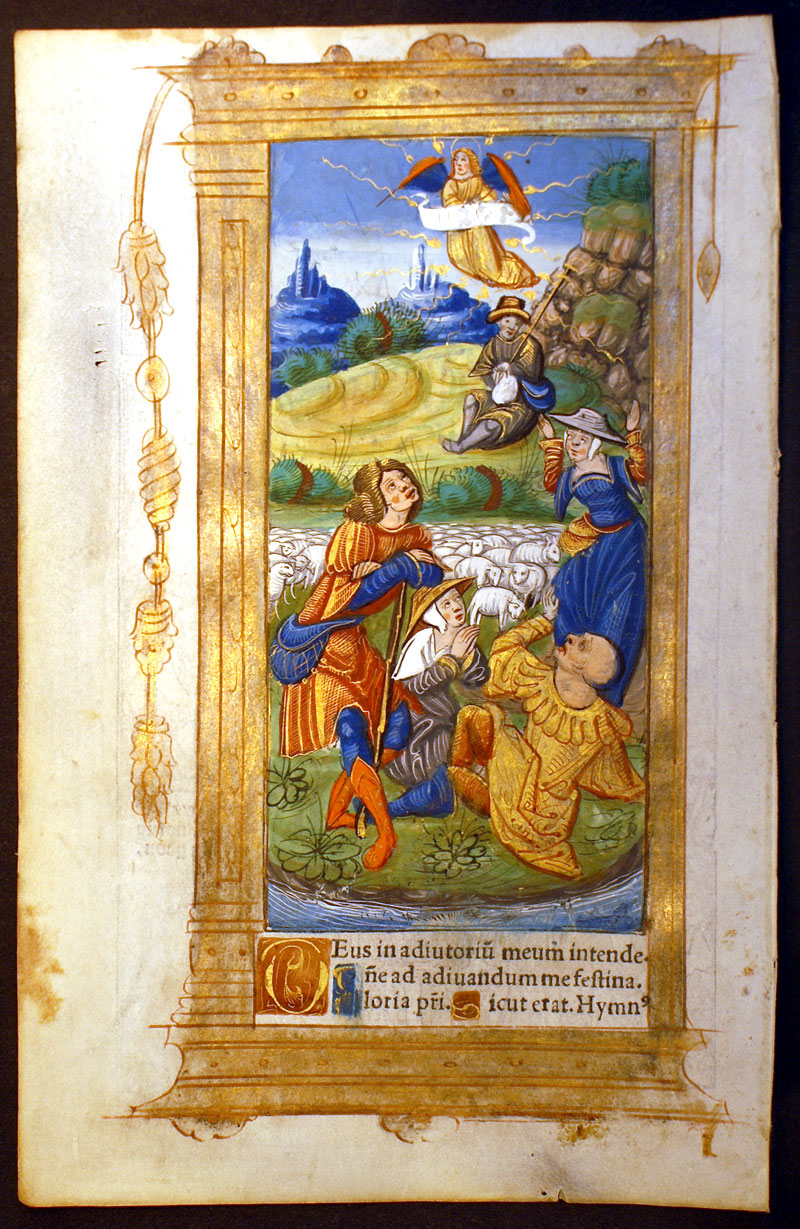 DEus in adiutoriū meum intende.
Dñe ad adiuuandum me festina.
Gloria pr̄i. Sicut erat. Hymnꝰ